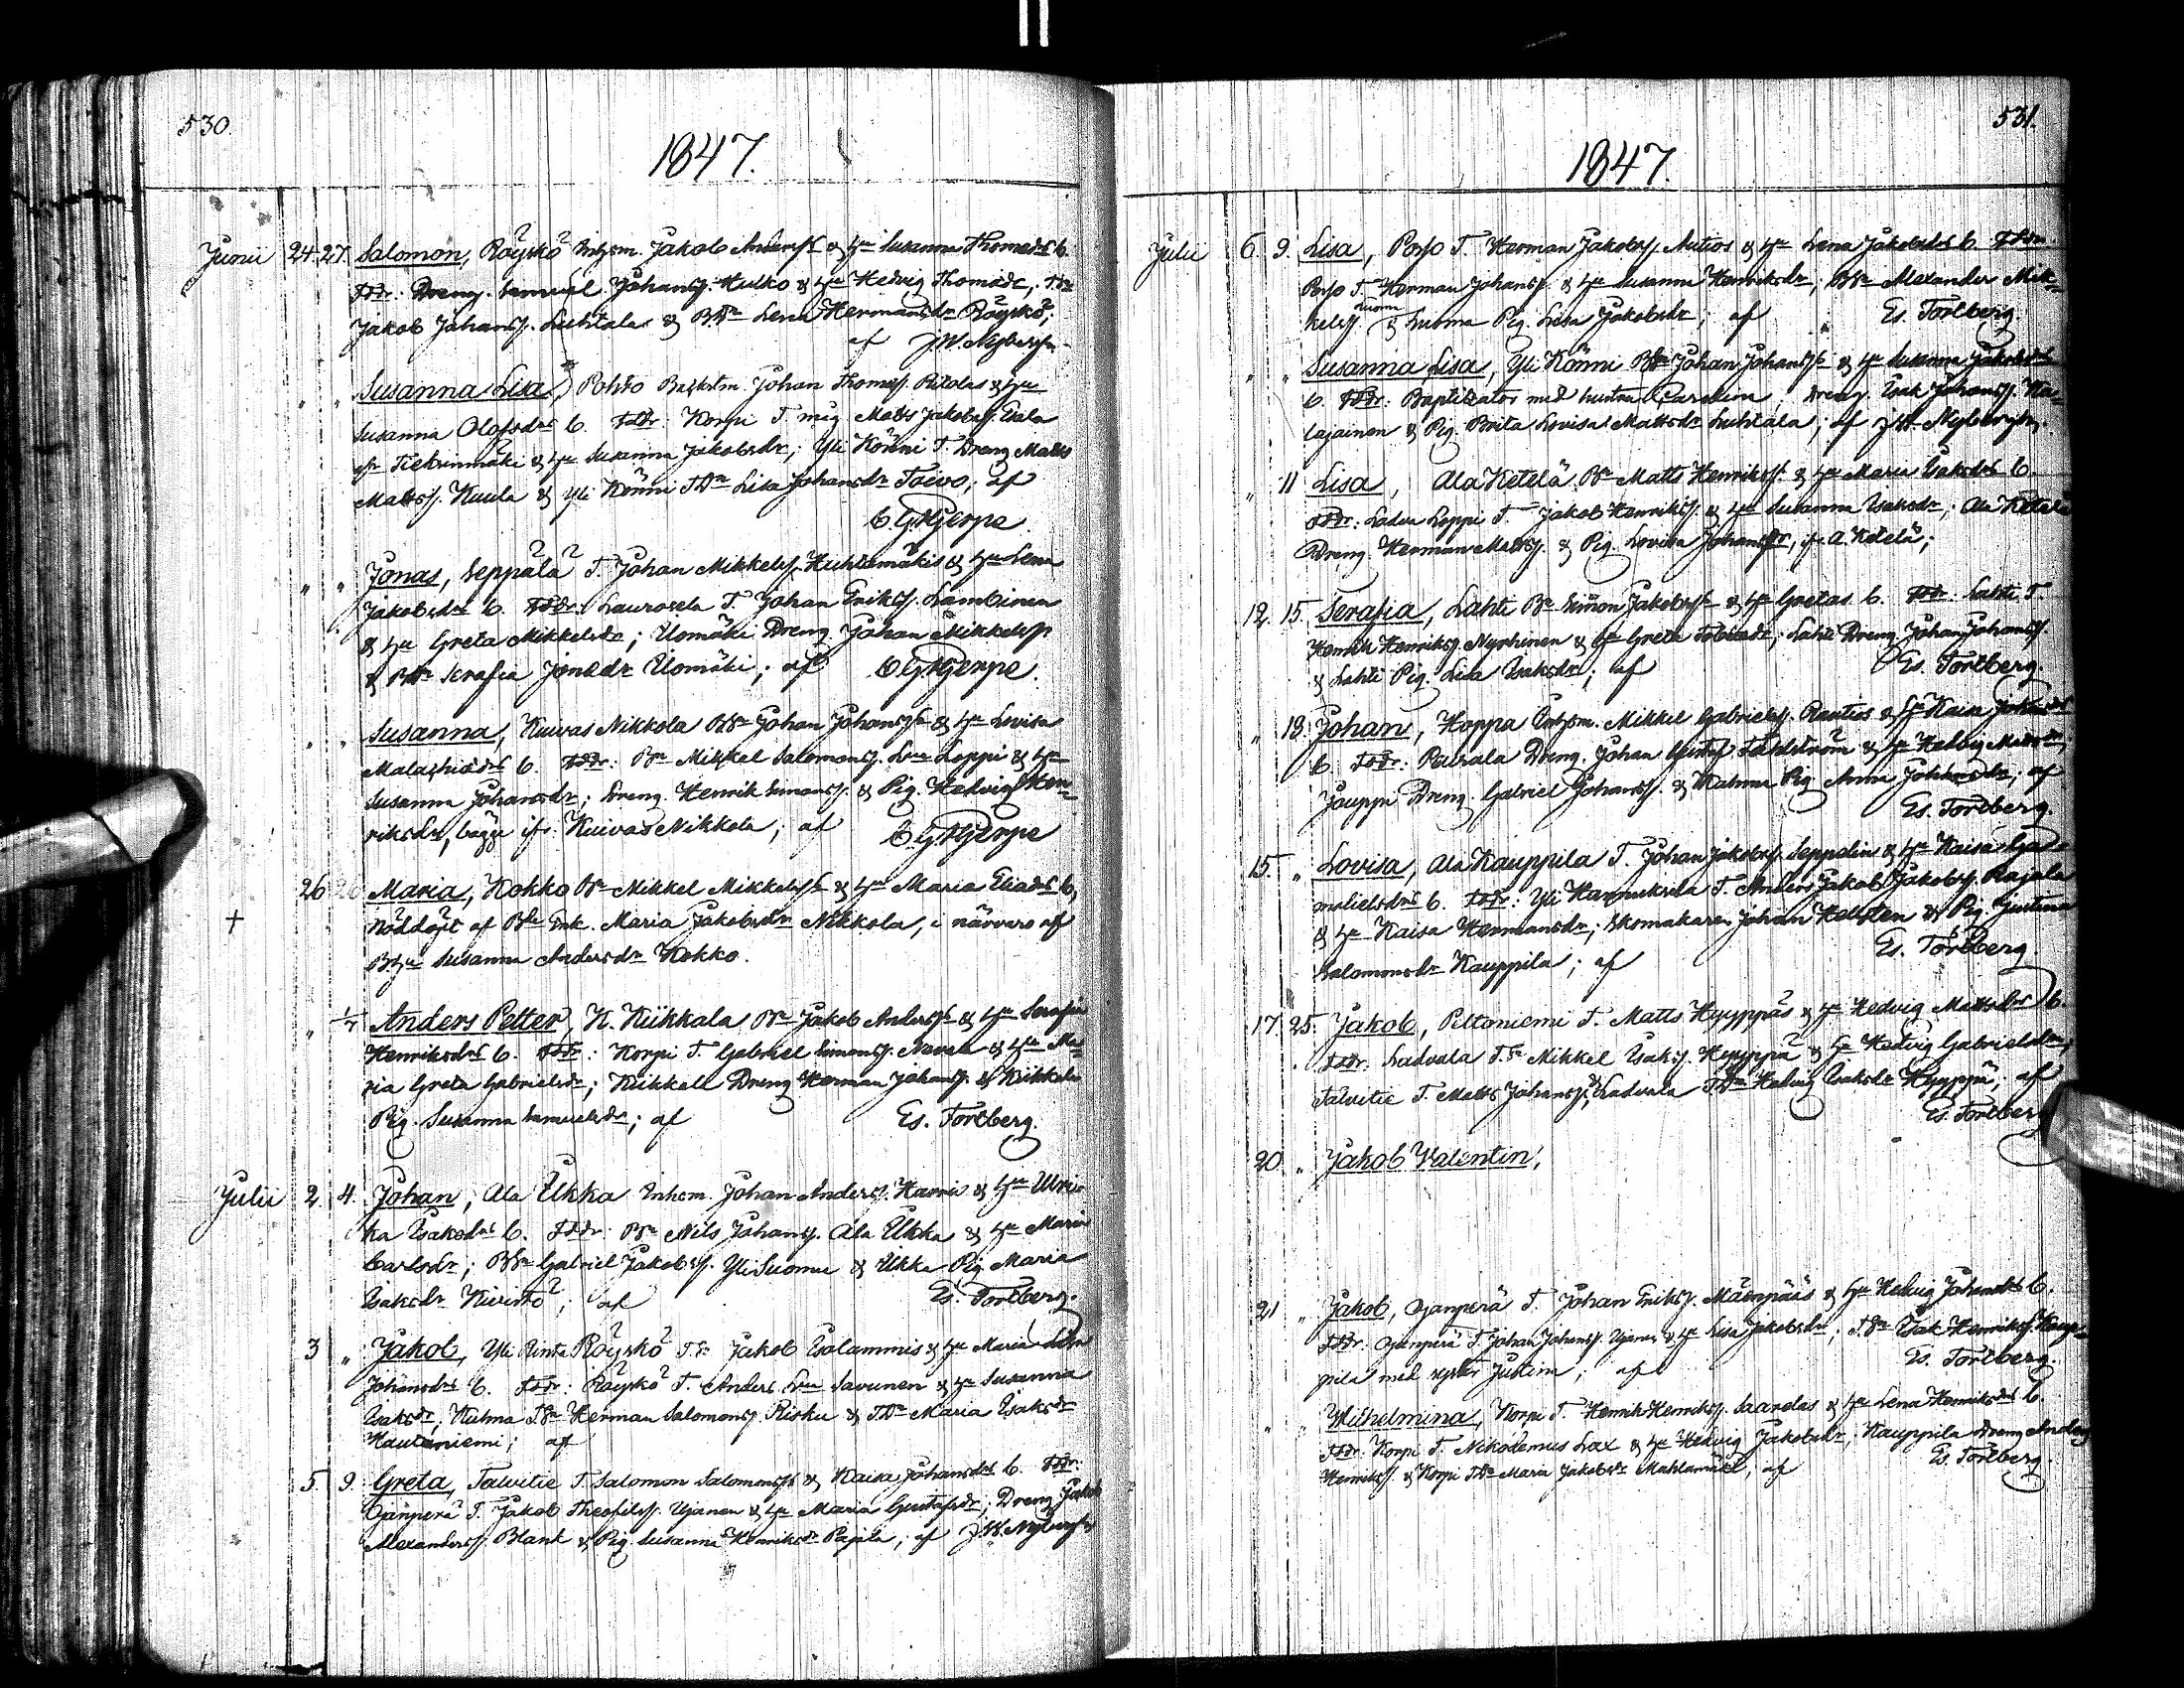 530.
1847.
Junii 24. 27. Salomon, Röyskö Inhsm. Jakob Andersss & Hu Susanna Thomædrs b.
Fddr: Dreng. Samuel Johanss. Hulko & Hu Hedvig Thomædr,
Jakob Johanss. Luhtala & BDr Lena Hermansdr Röyskö;
af J.W. Nyberg
" " Susanna Lisa, Pohto Johan Thomæss. & Hu
Susanna Olofsdrs b. Fddr: Korpi T. måg Matts Jakobss.
& Hu Susanna Jakobsdr; Yli Könni T. Dreng Matts
Mattss. Kuula & Yli Könni TDr Lisa Johansdr Toivo; af
C G Hjerpe
" " Jonas, Seppälä T. Johan Mikkelss. Huhtamäkis & Hu Lena
Jakobsdrs b. Fddr: Laurosela T. Johan Erikss. Lambinen
& Hu Greta Mikkelsdr; Ulomäki Dreng Johan Mikkelss.
& BDr Serafia Jonædr Ulomäki; af C G Hjerpe.
" " Susanna, Kuivas Nikkola BSr Johan Johansss & Hu Lovisa
Malachiædrs b. Fddr: Br Mikkel Salomonss. Loppi & Hu
Susanna Johansdr; Dreng. Henrik Simonss. & Pig. Hedvig Hen-
riksdr, bägge ifr. Kuivas Nikkola; af C G Hjerpe
26 26 Maria, Kokko Br Mikkel Mikkelsss & Hu Maria Eliædrs b,
+ Nöddöpt af Bde Enk. Maria Jakobsdr Nikkola, i närvaro af
BHu Susanna Andersdr Kokko.
" 1/7 Anders Petter, K. Kiikkala Br Jakob Andersss & Hu Serafia
Henriksdrs b. Fddr: Korpi T. Gabriel Simonss. & Hu Ma-
ria Greta Gabrielsdr; Kiikkala Dreng Herman Johanss. & Kiikkala
Pig. Susanna Samuelsdr; af Es. Forsberg.
Julii 2. 4. Johan, Ala Ukka Inhsm. Johan Anderss. Harri & Hu Ulri-
ka Isaksdrs b. Fddr: Br Nils Johanss. Ala Ukka & Hu Maria
Carlsdr; BSr Gabriel Jakobss. Yli Suomu & Ukka Pig. Maria
Isaksdr; af Es. Forsberg.
3 " Jakob, Yli Rinta Röyskö T.Sr Jakob Isolammis & Hu Maria Lisa
Johansdrs b. Fddr: Röyskö T. Anders Savunen & Hu Susanna
Isaksdr; Kuhna TSr Herman Salomonss. Risku & TDr Maria Isaksdr
Hautaniemi; af
5. 9. Greta, Talvitie T. Salomon Salomonsss & Kaisa Johansdrs b. Fddr:
Ojanperä T. Jakob Theofilss. Ujanen & Hu Maria Gustafsdr; Dreng Jakob
Alexanderss. Blank & Pig. Susanna Henriksdr Pajala; af J.W. Nyberg
531.
1847.
Julii 6. 9. Lisa, Porjo T. Herman Jakobss. Autios & Hu Lena Jakobsdrs b. Fddr
Porjo T. Herman Johanss. & Hu Susanna Henriksdr; BSr Alexander Mik-
kelss. Luoma & Luoma Pig. Lisa Jakobsdr; af Es. Forsberg.
" " Susanna Lisa, Yli Könni BSr Johan Johansss & Hu Susanna Jakobsdrs
b. Fddr: Baptizator med hustru Carolina; Dreng. Isak Johanss. Ka-
lajainen & Pig. Brita Lovisa Mattsdr Luhtala; af J W Nyberg
" 11 Lisa, Ala Ketelä Br Matts Henrikss. & Hu Maria Isaksdrs b.
Fddr: Ladun Loppi T. Jakob Henrikss. & Hu Susanna Isaksdr; Ala Ketelä
Dreng. Herman Mattss. & Pig. Lovisa Johansdr, ifr. A. Ketelä;
12. 15. Serafia, Lahti Br Simon Jakobsss & Hu Gretas b. Fddr: Lahti T.
Henrik Henrikss. Myrhinen & Hu Greta; Lahti Dreng. Johan Johanss.
& Lahti Pig. Lisa Isaksdr; af Es. Forsberg.
" 18. Johan, Hoppa Inhsm. Mikkel Gabrielss. Rautios & Hu Kaisa Johansdrs
b. Fddr: Paurala Dreng. Johan Gustaf & Hu Hedvig Mattsdr;
Jouppi Dreng. Gabriel Johanss. & Kuhna Pig Anna Johansdr; af
Es. Forsberg.
15. " Lovisa, Ala Kauppila T. Johan Jakobss. Seppelin & Hu Kaisa Ga-
malielsdrs b. Fddr: Yli Hannuksela T. Anders Jakob Jakobss. Rajala
& Hu Kaisa Hermansdr; Skomakaren Johan Hellsten & Pig. Justina
Salomonsdr Kauppila; af Es. Forsberg.
17. 25. Jakob, Peltoniemi T. Matts Hyyppäs & Hu Hedvig Mattsdrs b.
Fddr. Ladvala T.Sr Mikkel Isakss. Hyyppä & Hu Hedvig Gabrielsdr;
Talvitie T. Matts Johanss. & Ladvala TDr Hedvig Isaksdr Hyyppä; af
Es. Forsberg
20 " Jakob Valentin,
21 " Jakob, Ojanperä T. Johan Erikss. Mäenpääs & Hu Hedvig Johansdrs b.
Fddr. Ojanperä T. Johan Johanss. Ujanen & Hu Lisa Jakobsdr; T.Sr Isak Henrikss. Kaup-
pila med syster Justina; af Es. Forsberg.
" " Wilhelmina, Korpi T. Henrik Henrikss. Saarelas & Hu Lena Henriksdrs b.
Fddr. Korpi T. Nikodemus Lax & Hu Hedvig Jakobsdr; Kauppila Dreng Anders
Henrikss. & Korpi TDr Maria Jakobsdr Mahlamäki; af Es. Forsberg.